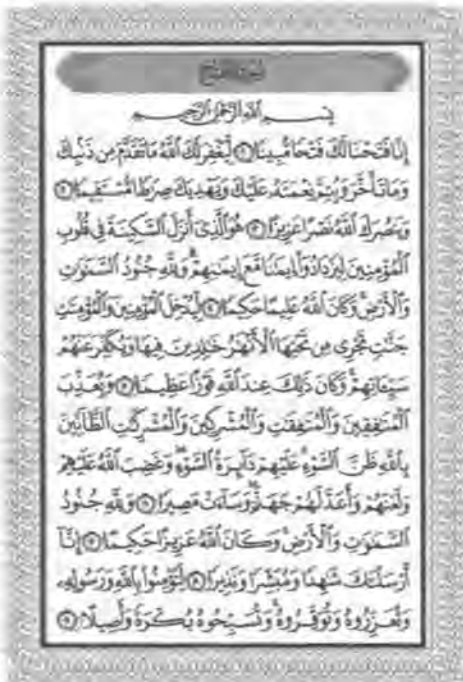 سورة الفتح
بِسْمِ اللَّهِ الرَّحْمَٰنِ الرَّحِيمِ
إِنَّا فَتَحْنَا لَكَ فَتْحًا مُّبِينًا ۝١ لِّيَغْفِرَ لَكَ اللَّهُ مَا تَقَدَّمَ مِن ذَنۢبِكَ
وَمَا تَأَخَّرَ وَيُتِمَّ نِعْمَتَهُۥ عَلَيْكَ وَيَهْدِيَكَ صِرَٰطًا مُّسْتَقِيمًا ۝٢
وَيَنصُرَكَ اللَّهُ نَصْرًا عَزِيزًا ۝٣ هُوَ الَّذِىٓ أَنزَلَ السَّكِينَةَ فِى قُلُوبِ
الْمُؤْمِنِينَ لِيَزْدَادُوٓا۟ إِيمَٰنًا مَّعَ إِيمَٰنِهِمْ ۗ وَلِلَّهِ جُنُودُ السَّمَٰوَٰتِ
وَالْأَرْضِ ۚ وَكَانَ اللَّهُ عَلِيمًا حَكِيمًا ۝٤ لِّيُدْخِلَ الْمُؤْمِنِينَ وَالْمُؤْمِنَٰتِ
جَنَّٰتٍ تَجْرِى مِن تَحْتِهَا الْأَنْهَٰرُ خَٰلِدِينَ فِيهَا وَيُكَفِّرَ عَنْهُمْ
سَيِّـَٔاتِهِمْ ۚ وَكَانَ ذَٰلِكَ عِندَ اللَّهِ فَوْزًا عَظِيمًا ۝٥ وَيُعَذِّبَ
الْمُنَٰفِقِينَ وَالْمُنَٰفِقَٰتِ وَالْمُشْرِكِينَ وَالْمُشْرِكَٰتِ الظَّآنِّينَ
بِاللَّهِ ظَنَّ السَّوْءِ ۚ عَلَيْهِمْ دَآئِرَةُ السَّوْءِ ۖ وَغَضِبَ اللَّهُ عَلَيْهِمْ
وَلَعَنَهُمْ وَأَعَدَّ لَهُمْ جَهَنَّمَ ۖ وَسَآءَتْ مَصِيرًا ۝٦ وَلِلَّهِ جُنُودُ
السَّمَٰوَٰتِ وَالْأَرْضِ ۚ وَكَانَ اللَّهُ عَزِيزًا حَكِيمًا ۝٧ إِنَّآ
أَرْسَلْنَٰكَ شَٰهِدًا وَمُبَشِّرًا وَنَذِيرًا ۝٨ لِّتُؤْمِنُوا۟ بِاللَّهِ وَرَسُولِهِۦ
وَتُعَزِّرُوهُ وَتُوَقِّرُوهُ ۚ وَتُسَبِّحُوهُ بُكْرَةً وَأَصِيلًا ۝٩